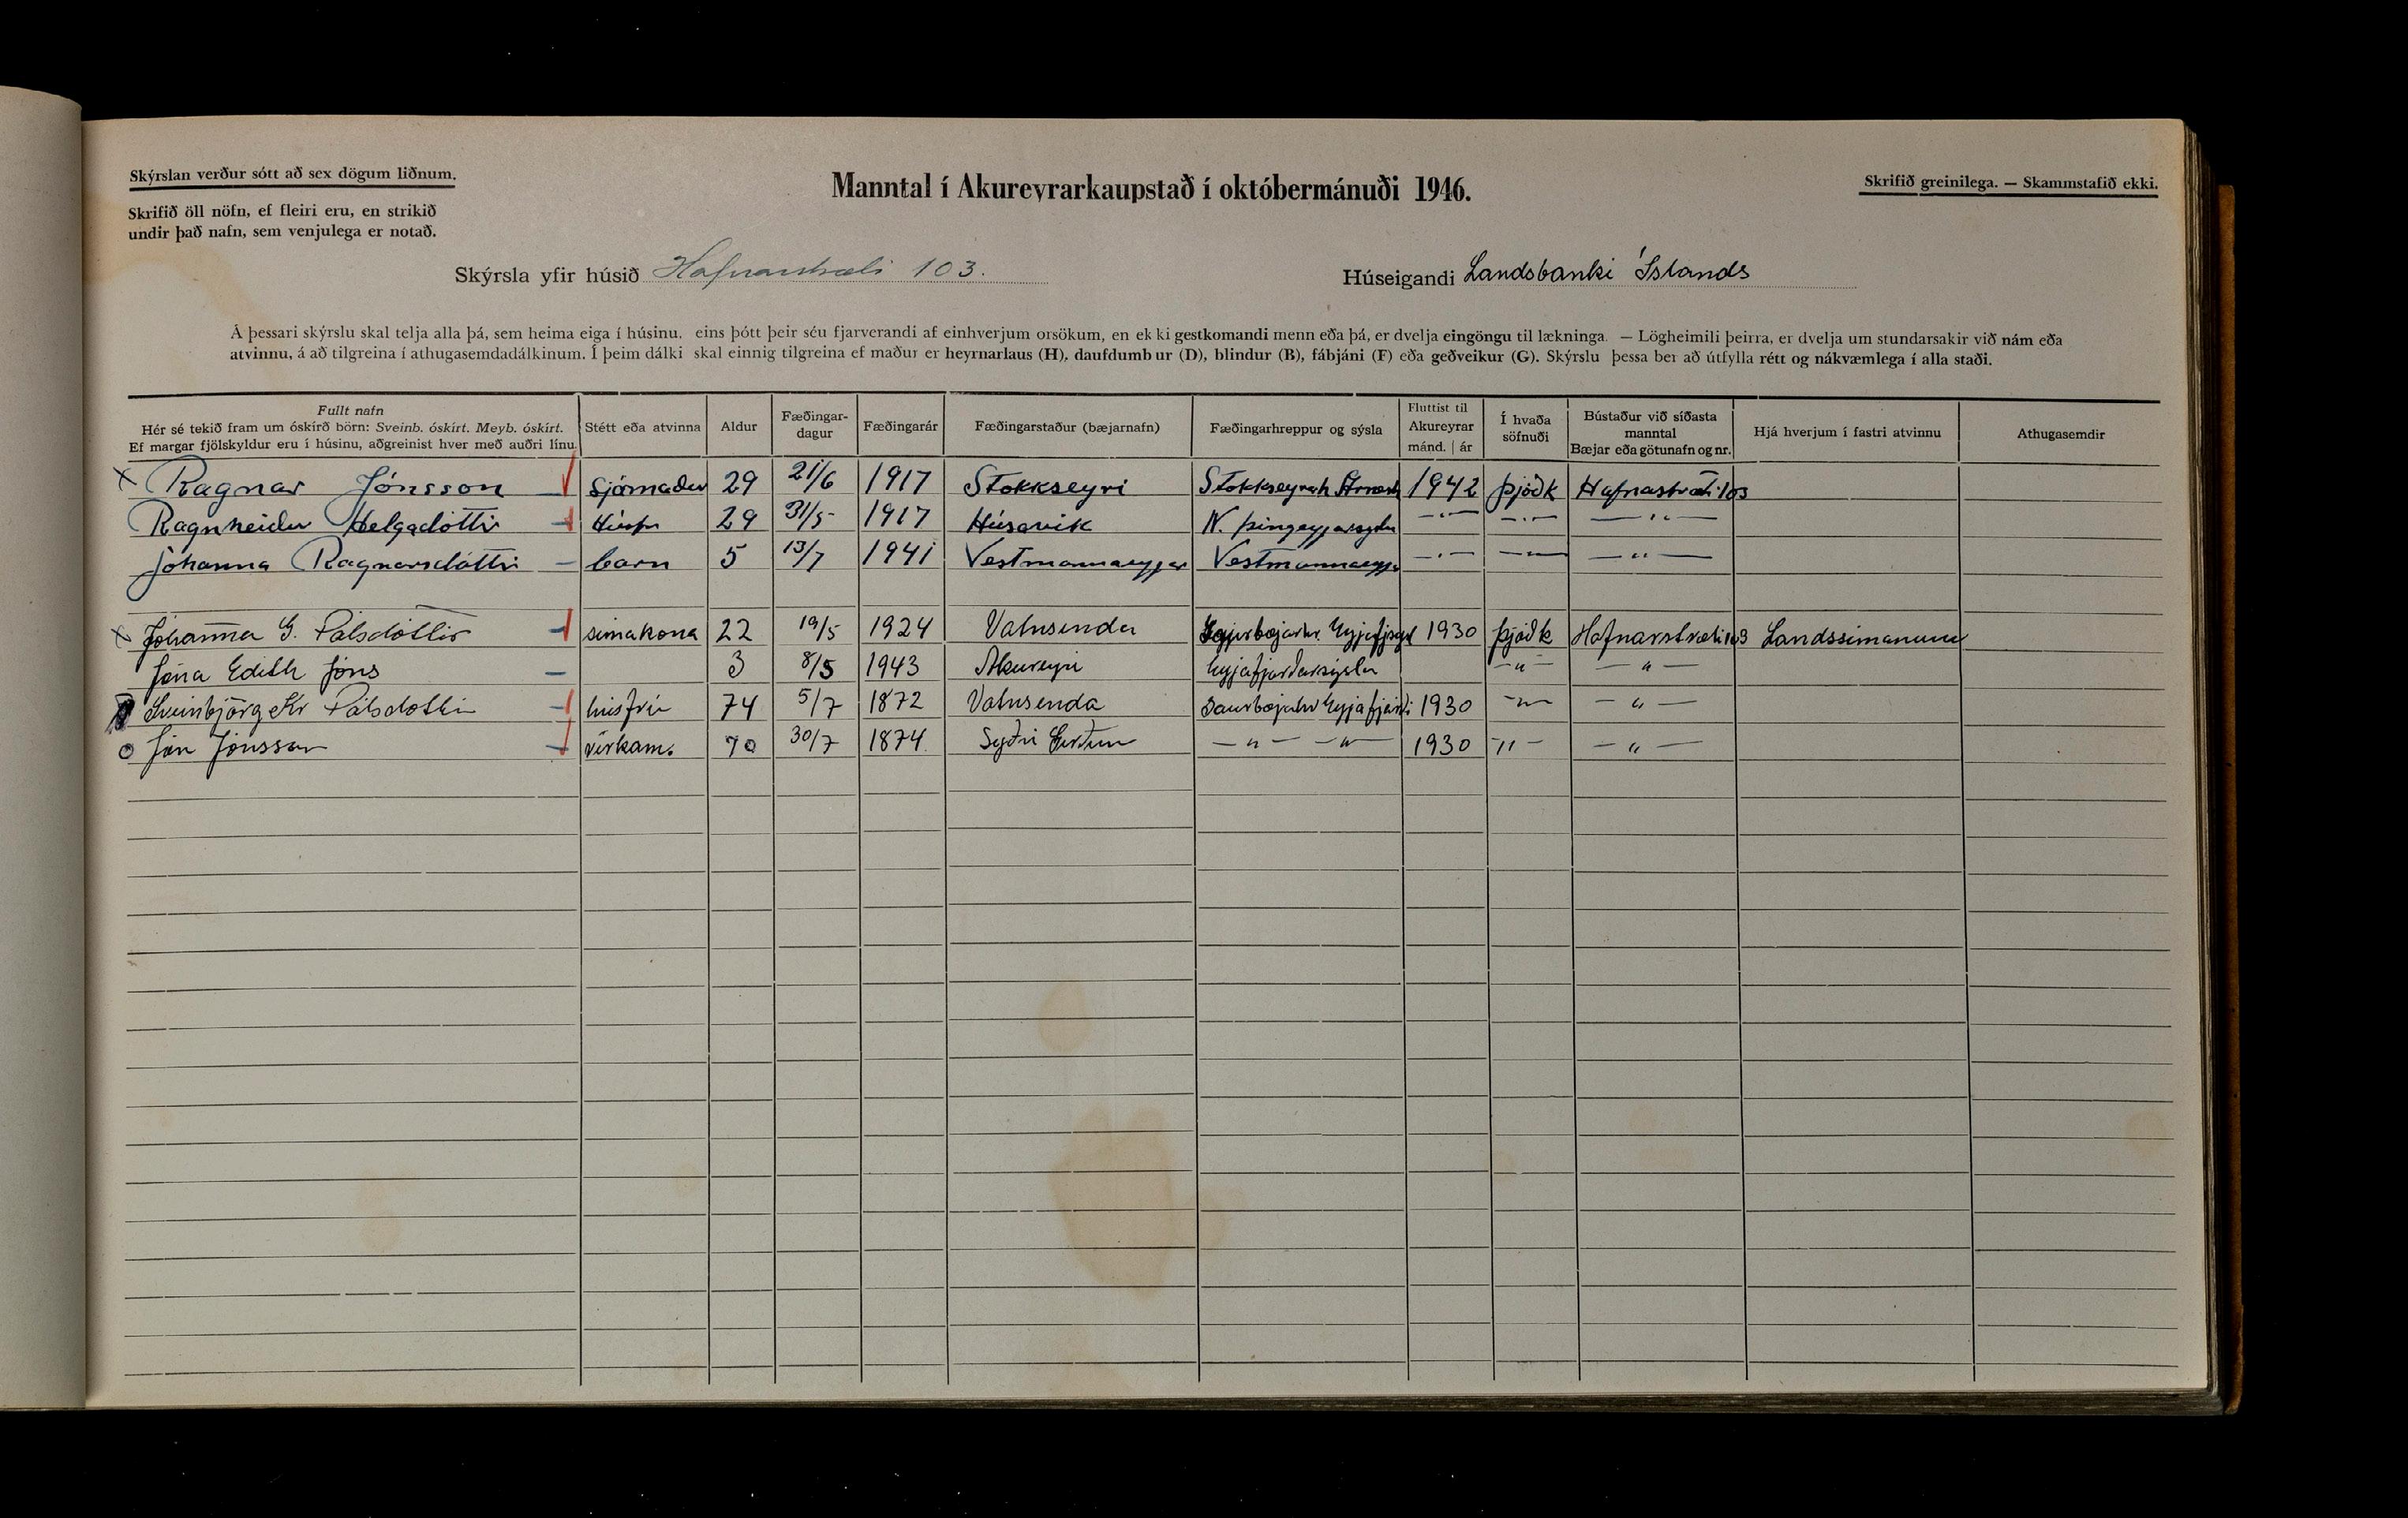 Skýrslan verður sótt að sex dögum liðnum.
Skrifið öll nöfn, ef fleiri eru, en strikið
undir það nafn, sem venjulega er notað.
Manntal í Akureyrarkaupstað í októbermánuði 1946.
Skrifið greinilega. — Skammstafið ekki.
Skýrsla yfir húsið Hafnarstræti 103.
Húseigandi Landsbanki Íslands
Á þessari skýrslu skal telja alla þá, sem heima eiga í húsinu, eins þótt þeir séu fjarverandi af einhverjum orsökum, en ekki gestkomandi menn eða þá, er dvelja eingöngu til lækninga. — Lögheimili þeirra, er dvelja um stundarsakir við nám eða
atvinnu, á að tilgreina í athugasemdadálkinum. Í þeim dálki skal einnig tilgreina ef maður er heyrnarlaus (H), daufdumbur (D), blindur (B), fábjáni (F) eða geðveikur (G). Skýrslu þessa ber að útfylla rétt og nákvæmlega í alla staði.
Fullt nafn
Hér sé tekið fram um óskírð börn: Sveinb. óskírt. Meyb. óskírt.
Ef margar fjölskyldur eru í húsinu, aðgreinist hver með auðri línu.
Stétt eða atvinna
Aldur
Fæðingar-
dagur
Fæðingarár
Fæðingarstaður (bæjarnafn)
Fæðingarhreppur og sýsla
Fluttist til
Akureyrar
mánd. | ár
Í hvaða
söfnuði
Bústaður við síðasta
manntal
Bæjar eða götunafn og nr.
Hjá hverjum í fastri atvinnu
Athugasemdir
x Ragnar Jónsson — Sjómaður 29 21/6 1917 Stokkseyri Stokkseyrarh 1942 Þjóðk Hafnastræti 103
Ragnheiður Helgadóttir — Húsfr 29 31/5 1917 Húsavik N. Þingeyjarsýslu —〃— —〃— —〃—
Jóhanna Ragnarsdóttir — barn 5 13/7 1941 Vestmannaeyjar Vestmannaeyj. —〃— —〃— —〃—
x Jóhanna G. Pálsdóttir — símakona 22 19/5 1924 Vatnsenda 1930 Þjóðk Hafnarstræti 103 Landssímanum
Jóna Edith Jóns — 3 8/5 1943 Akureyri Eyjafjarðarsýslu —〃— —〃—
Sveinbjörg Kr Pálsdóttir — húsfrú 74 5/7 1872 Vatnsenda Saurbæjahr Eyjafjarð: 1930 —〃— —〃—
o Jón Jónsson — verkam. 70 30/7 1874 Syðri —〃— —〃— 1930 —〃— —〃—